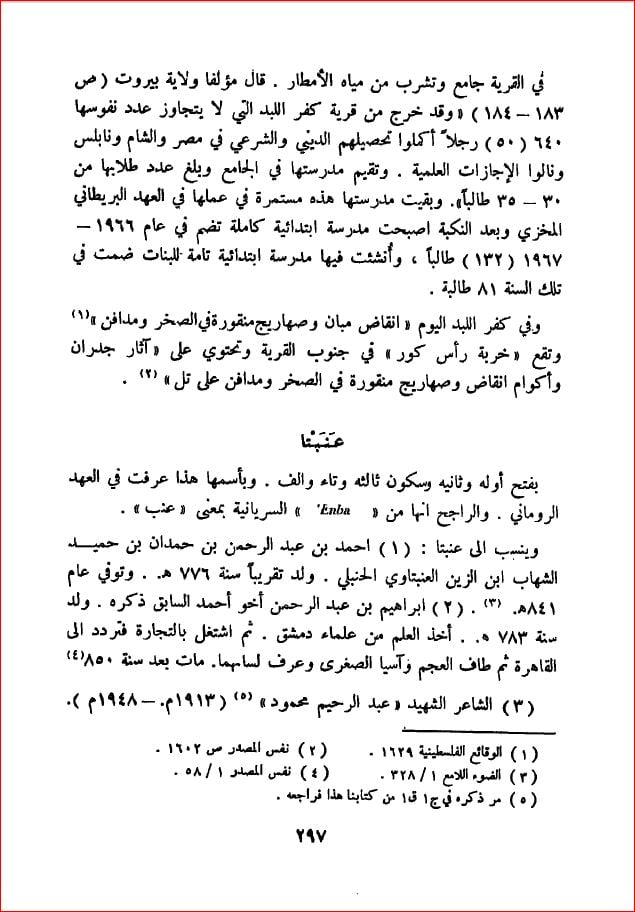 في القرية جامع وتشرب من مياه الأمطار . قال مؤلفا ولاية بيروت ( ص
١٨٣ – ١٨٤ ) « وقد خرج من قرية كفر اللبد التي لا يتجاوز عدد نفوسها
٦٤٠ ( ٥٠ ) رجلاً أكملوا تحصيلهم الديني والشرعي في مصر والشام ونابلس
ونالوا الإجازات العلمية . وتقيم مدرستها في الجامع ويبلغ عدد طلابها من
٣٠ – ٣٥ طالباً» . وبقيت مدرستها هذه مستمرة في عملها في العهد البريطاني
المخزي وبعد النكبة اصبحت مدرسة ابتدائية كاملة تضم في عام ١٩٦٦ –
١٩٦٧ ( ١٣٢ ) طالباً ، وأنشئت فيها مدرسة ابتدائية تامة للبنات ضمت في
تلك السنة ٨١ طالبة .
وفي كفر اللبد اليوم « انقاض مبان وصهاريج منقورة في الصخر ومدافن » (١)
وتقع « خربة رأس كور » في جنوب القرية وتحتوي على « آثار جدران
وأكوام انقاض وصهاريج منقورة في الصخر ومدافن على تل » (٢) .
عَنَبْتا
بفتح أوله وثانيه وسكون ثالثه وتاء والف . وبأسمها هذا عرفت في العهد
الروماني . والراجح انها من « 'Enba » السريانية بمعنى « عنب » .
وينسب الى عنبتا : ( ١ ) احمد بن عبد الرحمن بن حمدان بن حميد
الشهاب ابن الزين العنبتاوي الحنبلي . ولد تقريباً سنة ٧٧٦ هـ . وتوفي عام
٨٤١هـ. (٣) . ( ٢ ) ابراهيم بن عبد الرحمن أخو أحمد السابق ذكره . ولد
سنة ٧٨٣ هـ . أخذ العلم من علماء دمشق . ثم اشتغل بالتجارة فتردد الى
القاهرة ثم طاف العجم وآسيا الصغرى وعرف لسانهما. مات بعد سنة ٨٥٠ (٤)
( ٣ ) الشاعر الشهيد « عبد الرحيم محمود » (٥) ( ١٩١٣م. – ١٩٤٨م ).
( ١ ) الوقائع الفلسطينية ١٦٢٩ . ( ٢ ) نفس المصدر ص ١٦٠٢ .
( ٣ ) الضوء اللامع ١ / ٣٢٨ . ( ٤ ) نفس المصدر ١ / ٥٨ .
( ٥ ) مر ذكره في ج١ ق١ من كتابنا هذا فراجعه .
٢٩٧